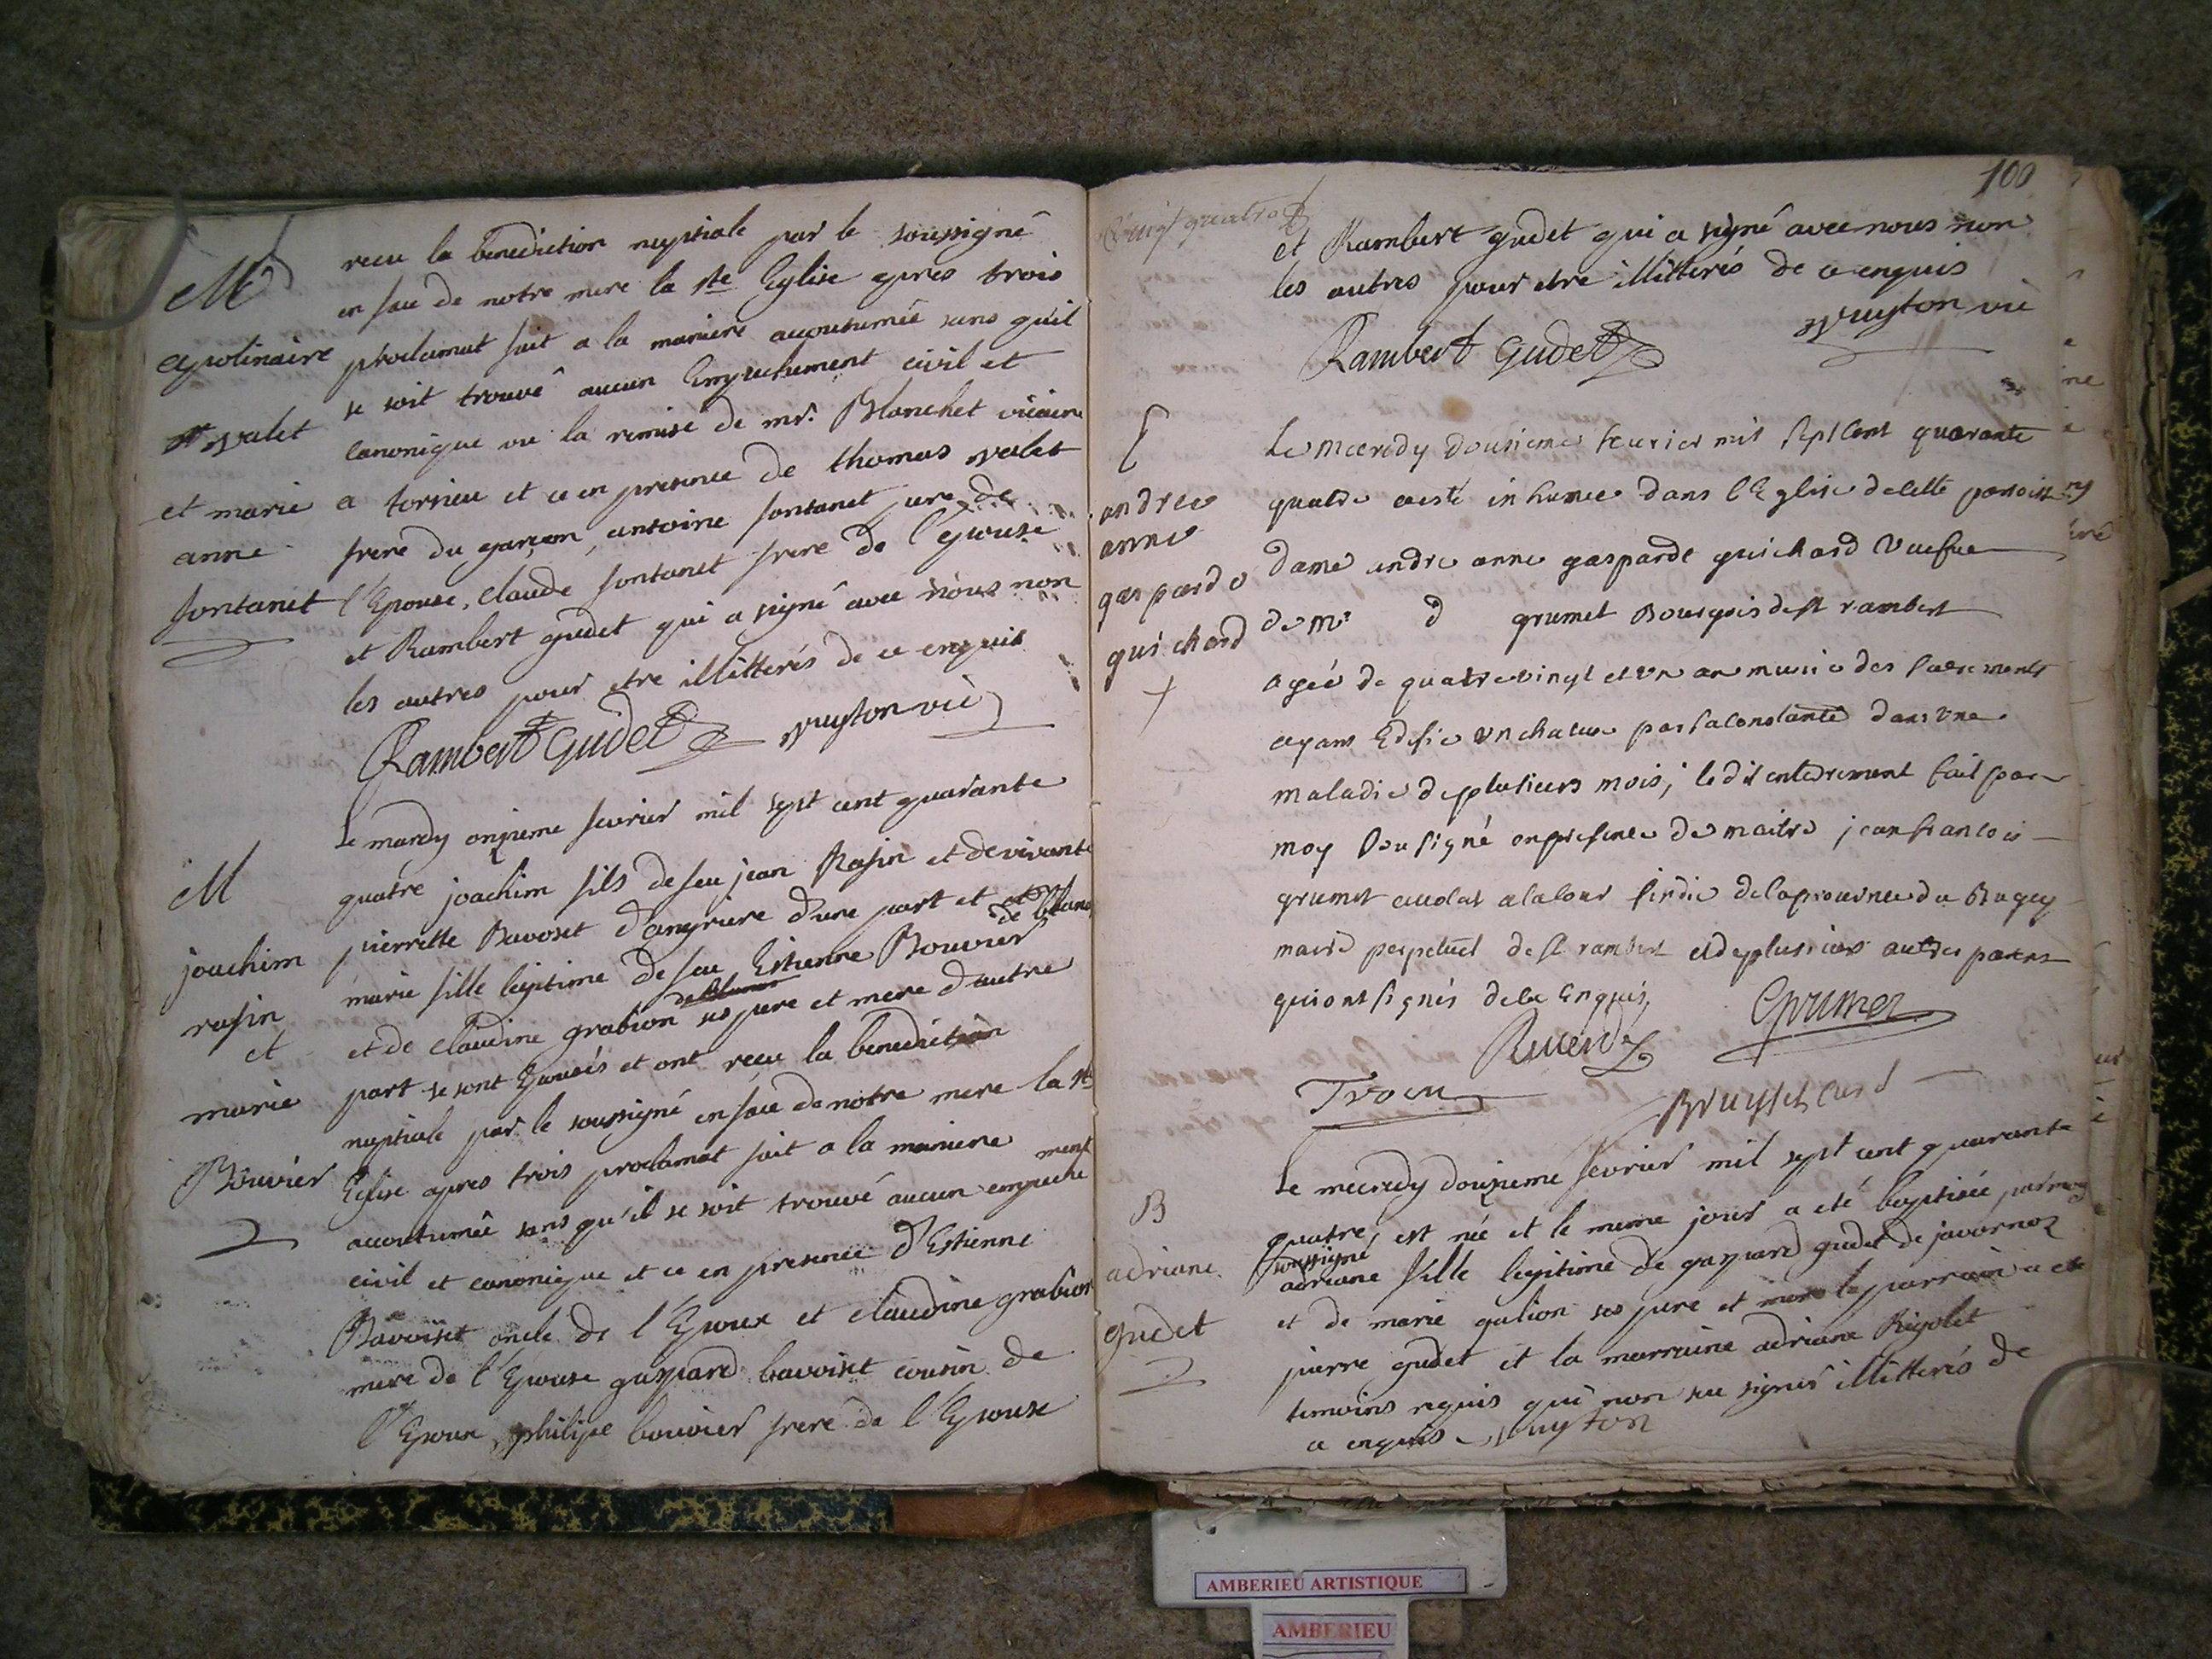 M
apolinaire
valet
et marie
anne
fontanet
recu la benediction nuptiale par le soussigné
en face de notre mere la ste Eglise apres trois
proclamat fait a la maniere accoutumée sans qu'il
se soit trouvé aucun Empechement civil et
canonique vu la remise de mr. Blanchet vicaire
a torcieu et ce en presence de thomas valet
frere du garcon, antoine fontanet pere de
l'Epouse, claude fontanet frere de l'Epouse
et Rambert gudet qui a signé avec nous non
les autres pour etre illitterés de ce enquis
Rambert Gudet
M
joachim
rasin
et
marie
Bouvier
Le mardy onzieme fevrier mil sept cent quarante
quatre joachim fils de feu jean Rasin et de vivante
pierrette Bavoset d'angriere d'une part et et
de blanas
marie fille legitime de feu Estienne Bouvier
et de claudine grabion ses pere et mere d'autre
part se sont Epousés et ont recu la benediction
nuptiale par le soussigné en face de notre mere la ste
Eglise apres trois proclamat fait a la maniere
accoutumée sans qu'il se soit trouvé aucun empeche
ment
civil et canonique et ce en presence d'Estienne
Bavoiset oncle de l'Epoux et claudine grabion
mere de l'Epouse gaspard bavoiset cousin de
l'Epoux, philipe bouvier frere de l'Epouse
100
et Rambert gudet qui a signé avec nous non
les autres pour etre illitterés de ce enquis
Rambert Gudet
andree
anne
gasparde
guichard
Le mecredy dousieme feurier mil sept cent quarante
quatre a esté inhumee dans l'Eglise de cette paroisse
dame andre anne gasparde guichard veufue
de mr d grumet Bourgois de st rambert
agée de quatre vingt et un an munie des sacrements
ayant Edifie un chacun par sa constante dans une
maladie de plusieurs mois, ledit enterrement fait par
moy sousigné en presence de maitre jean francois
grumet auocat a la cour sindic de la prouince du Bugey
maire perpetuel de st rambert et de plusieurs autres parens
qui ont signés de ce Enquis,
Grumet
B
adriane
gudet
Le mecredy douzieme fevrier mil sept cent quarante
quatre, est née et le meme jour a eté baptisée par moy
soussigné
adriane fille legitime de gaspard gudet de javornoz
et de marie galion ses pere et mere le parrain a ete
pierre gudet et la marraine adriane Rigolet
temoins requis qui n'ont sceu signer illitterés de
ce enquis
AMBERIEU ARTISTIQUE
AMBERIEU